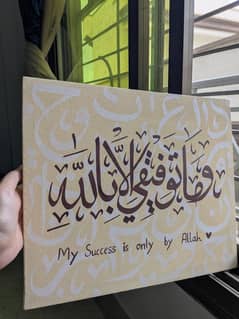 وَمَا تَوْفِيقِي إِلَّا بِاللَّهِ
My Success is only by Allah ♥